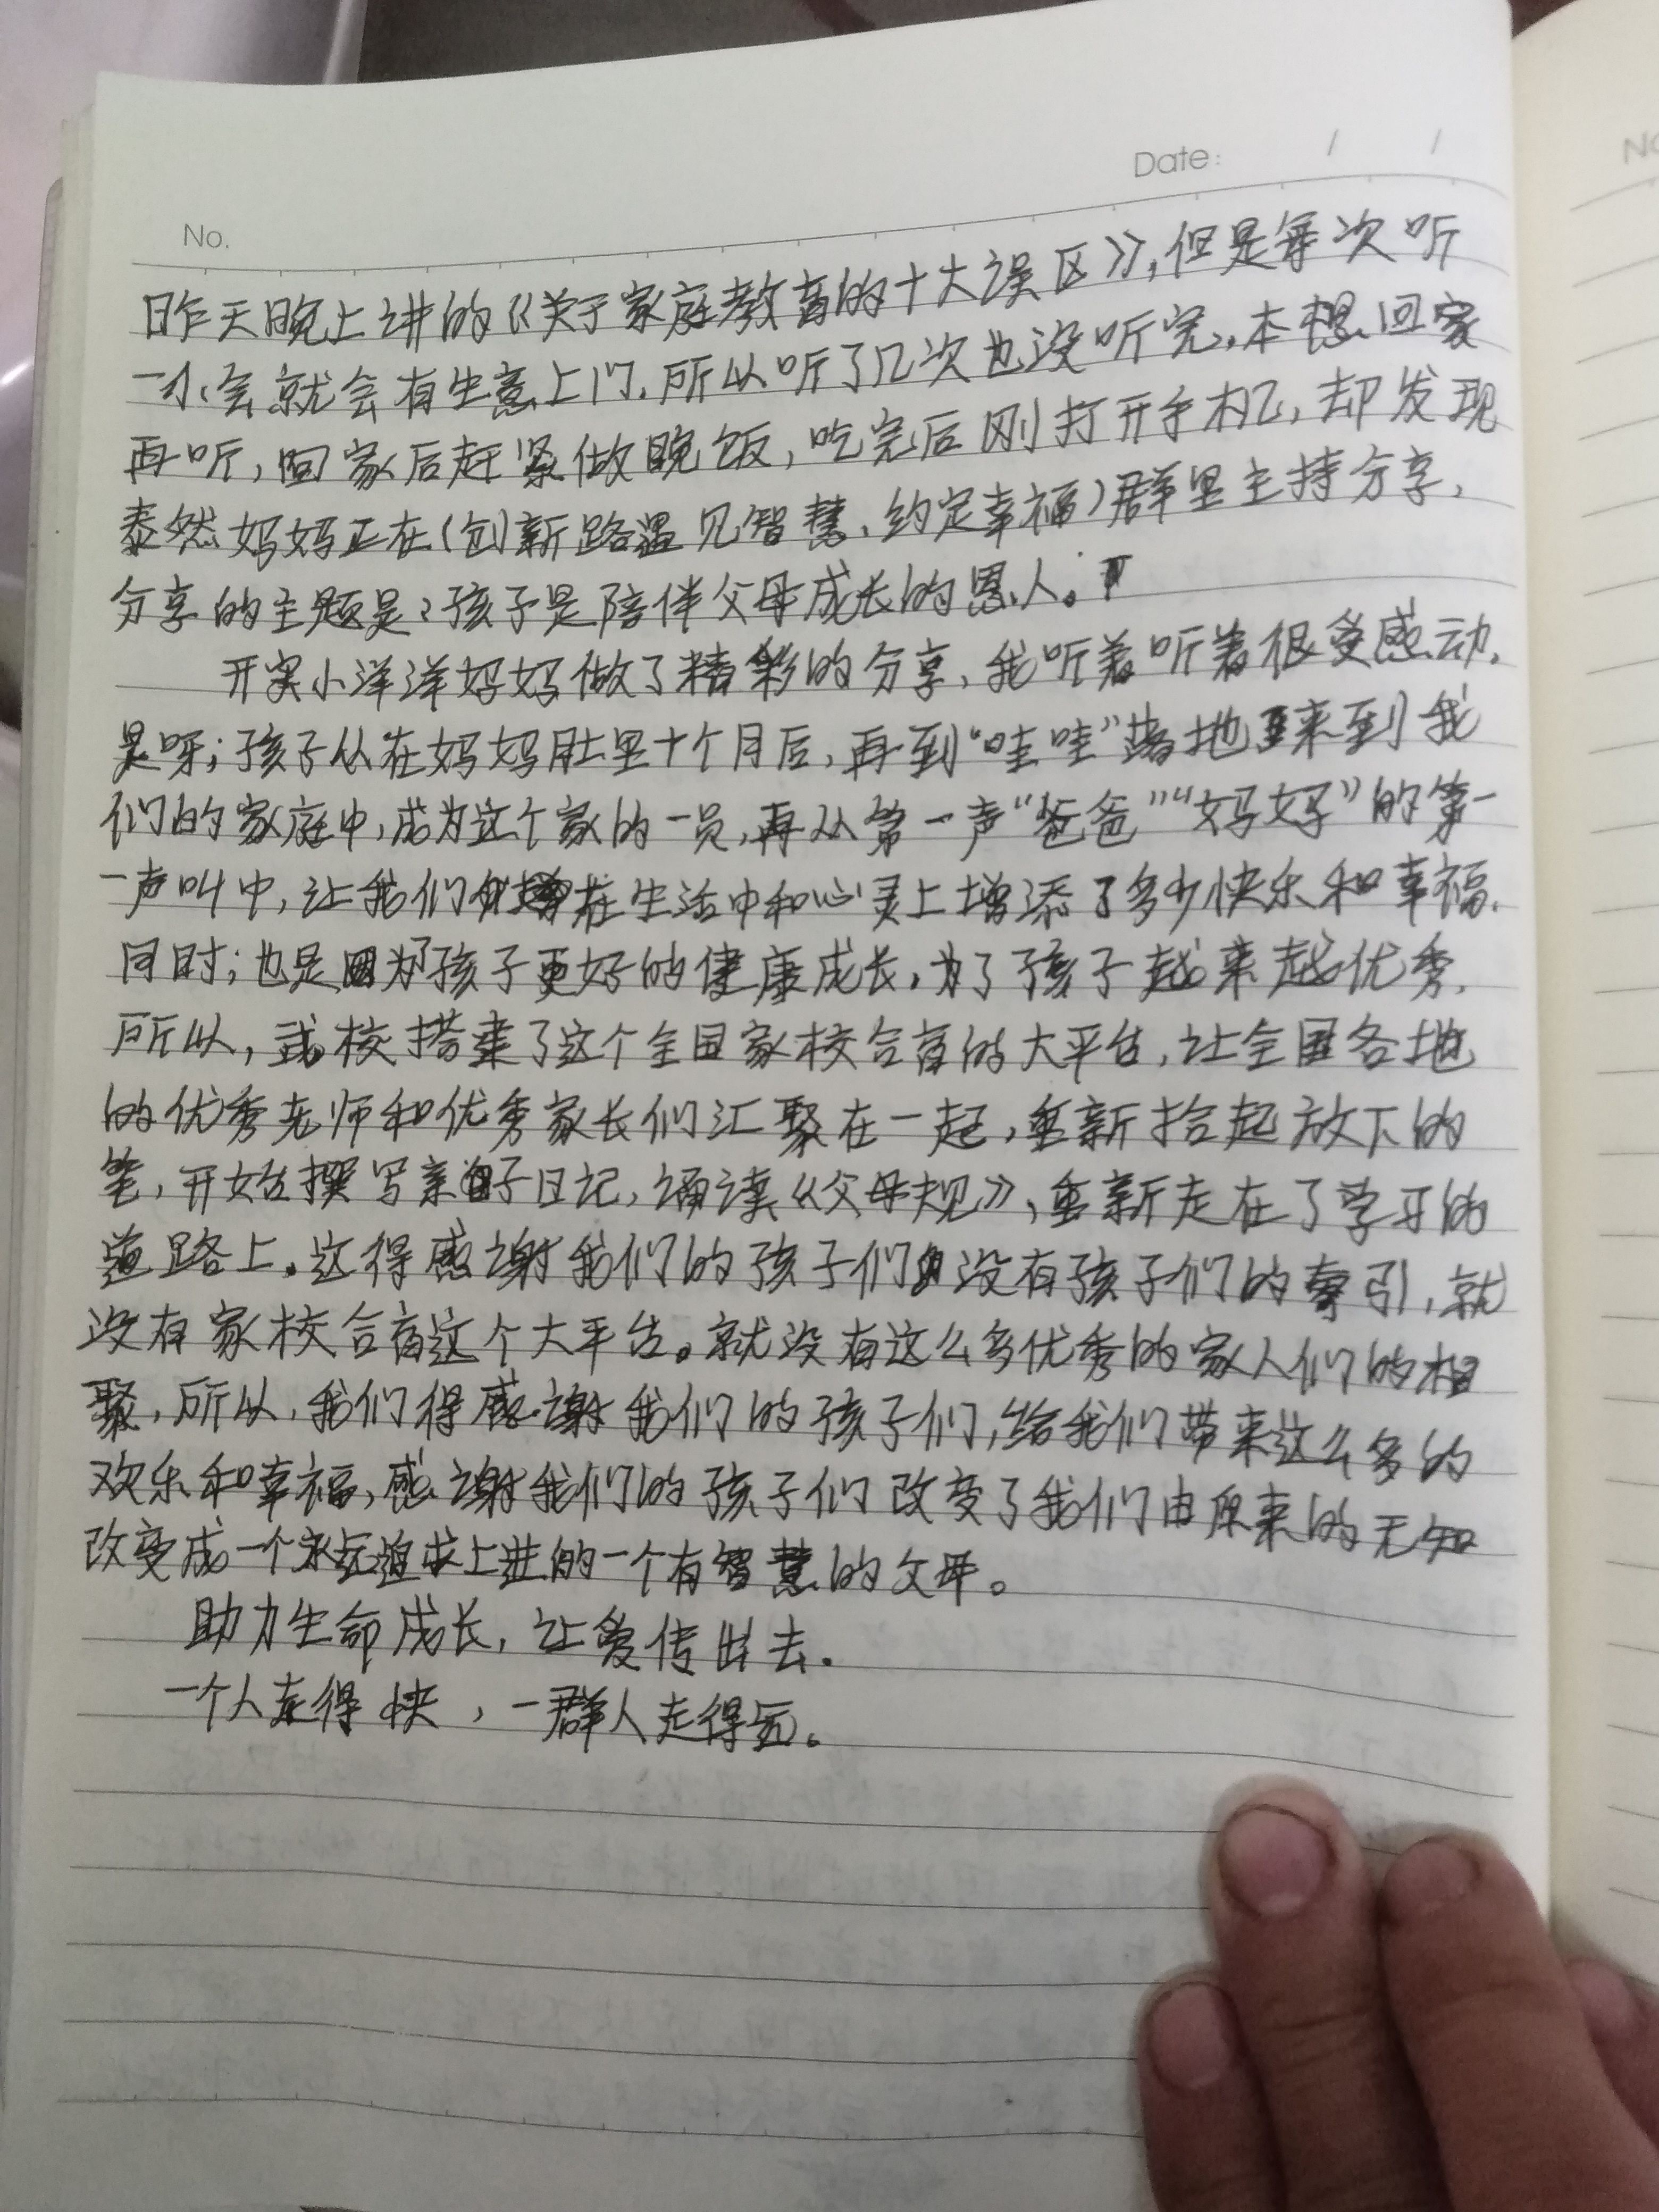 Date: / /
No.
No
昨天晚上讲的《关于家庭教育的十大误区》,但是每次听
一小会就会有生意上门.所以听了几次也没听完,本想回家
再听,回家后赶紧做晚饭,吃完后刚打开手机,却发现
泰然妈妈正在(创新路遇见智慧、约定幸福)群里主持分享,
分享的主题是:孩子是陪伴父母成长的恩人。
开实小洋洋妈妈做了精彩的分享,我听着听着很受感动,
是呀;孩子从在妈妈肚里十个月后,再到“哇哇”落地来到我
们的家庭中,成为这个家的一员,再从第一声“爸爸”“妈妈”的第
一声叫中,让我们在生活中和心灵上增添了多少快乐和幸福.
同时;也是因为了孩子更好的健康成长,为了孩子越来越优秀,
所以,我校搭建了这个全国家校合育的大平台,让全国各地
的优秀老师和优秀家长们汇聚在一起,重新拾起放下的
笔,开始撰写亲子日记,诵读《父母规》,重新走在了学习的
道路上。这得感谢我们的孩子们,没有孩子们的牵引,就
没有家校合育这个大平台。就没有这么多优秀的家人们的相
聚,所以,我们得感谢我们的孩子们,给我们带来这么多的
欢乐和幸福,感谢我们的孩子们改变了我们由原来的无知
改变成一个永远追求上进的一个有智慧的父母。
助力生命成长,让爱传出去.
一个人走得快,一群人走得远。